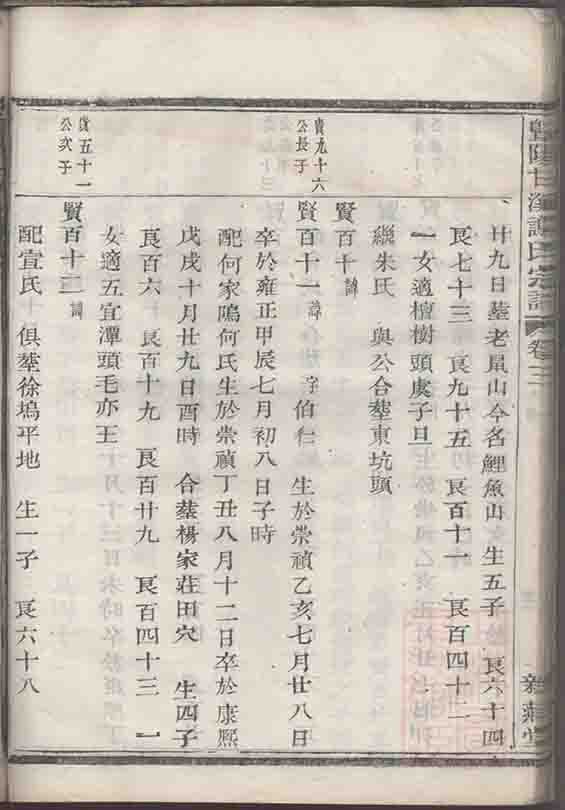 廿九日塟老鼠山今名鯉魚山 生五子 艮六十四
艮七十三 艮九十五 艮百十一 艮百四十二
一女適檀樹頭虞子旦
繼朱氏 與公合塟東坑頭
賢百十 諱
貴九十六
公長子
賢百十一 諱 字伯仁 生於崇禎乙亥七月廿八日
卒於雍正甲辰七月初八日子時
配何家塢何氏生於崇禎丁丑八月十二日卒於康熙
戊戌十月廿九日酉時 合塟楊家莊田穴 生四子
艮百六 艮百十九 艮百廿九 艮百四十三 一
女適五宜潭頭毛亦王
五十一
公次子
賢百十二 諱
配宣氏 俱塟徐塢平地 生一子 艮六十八